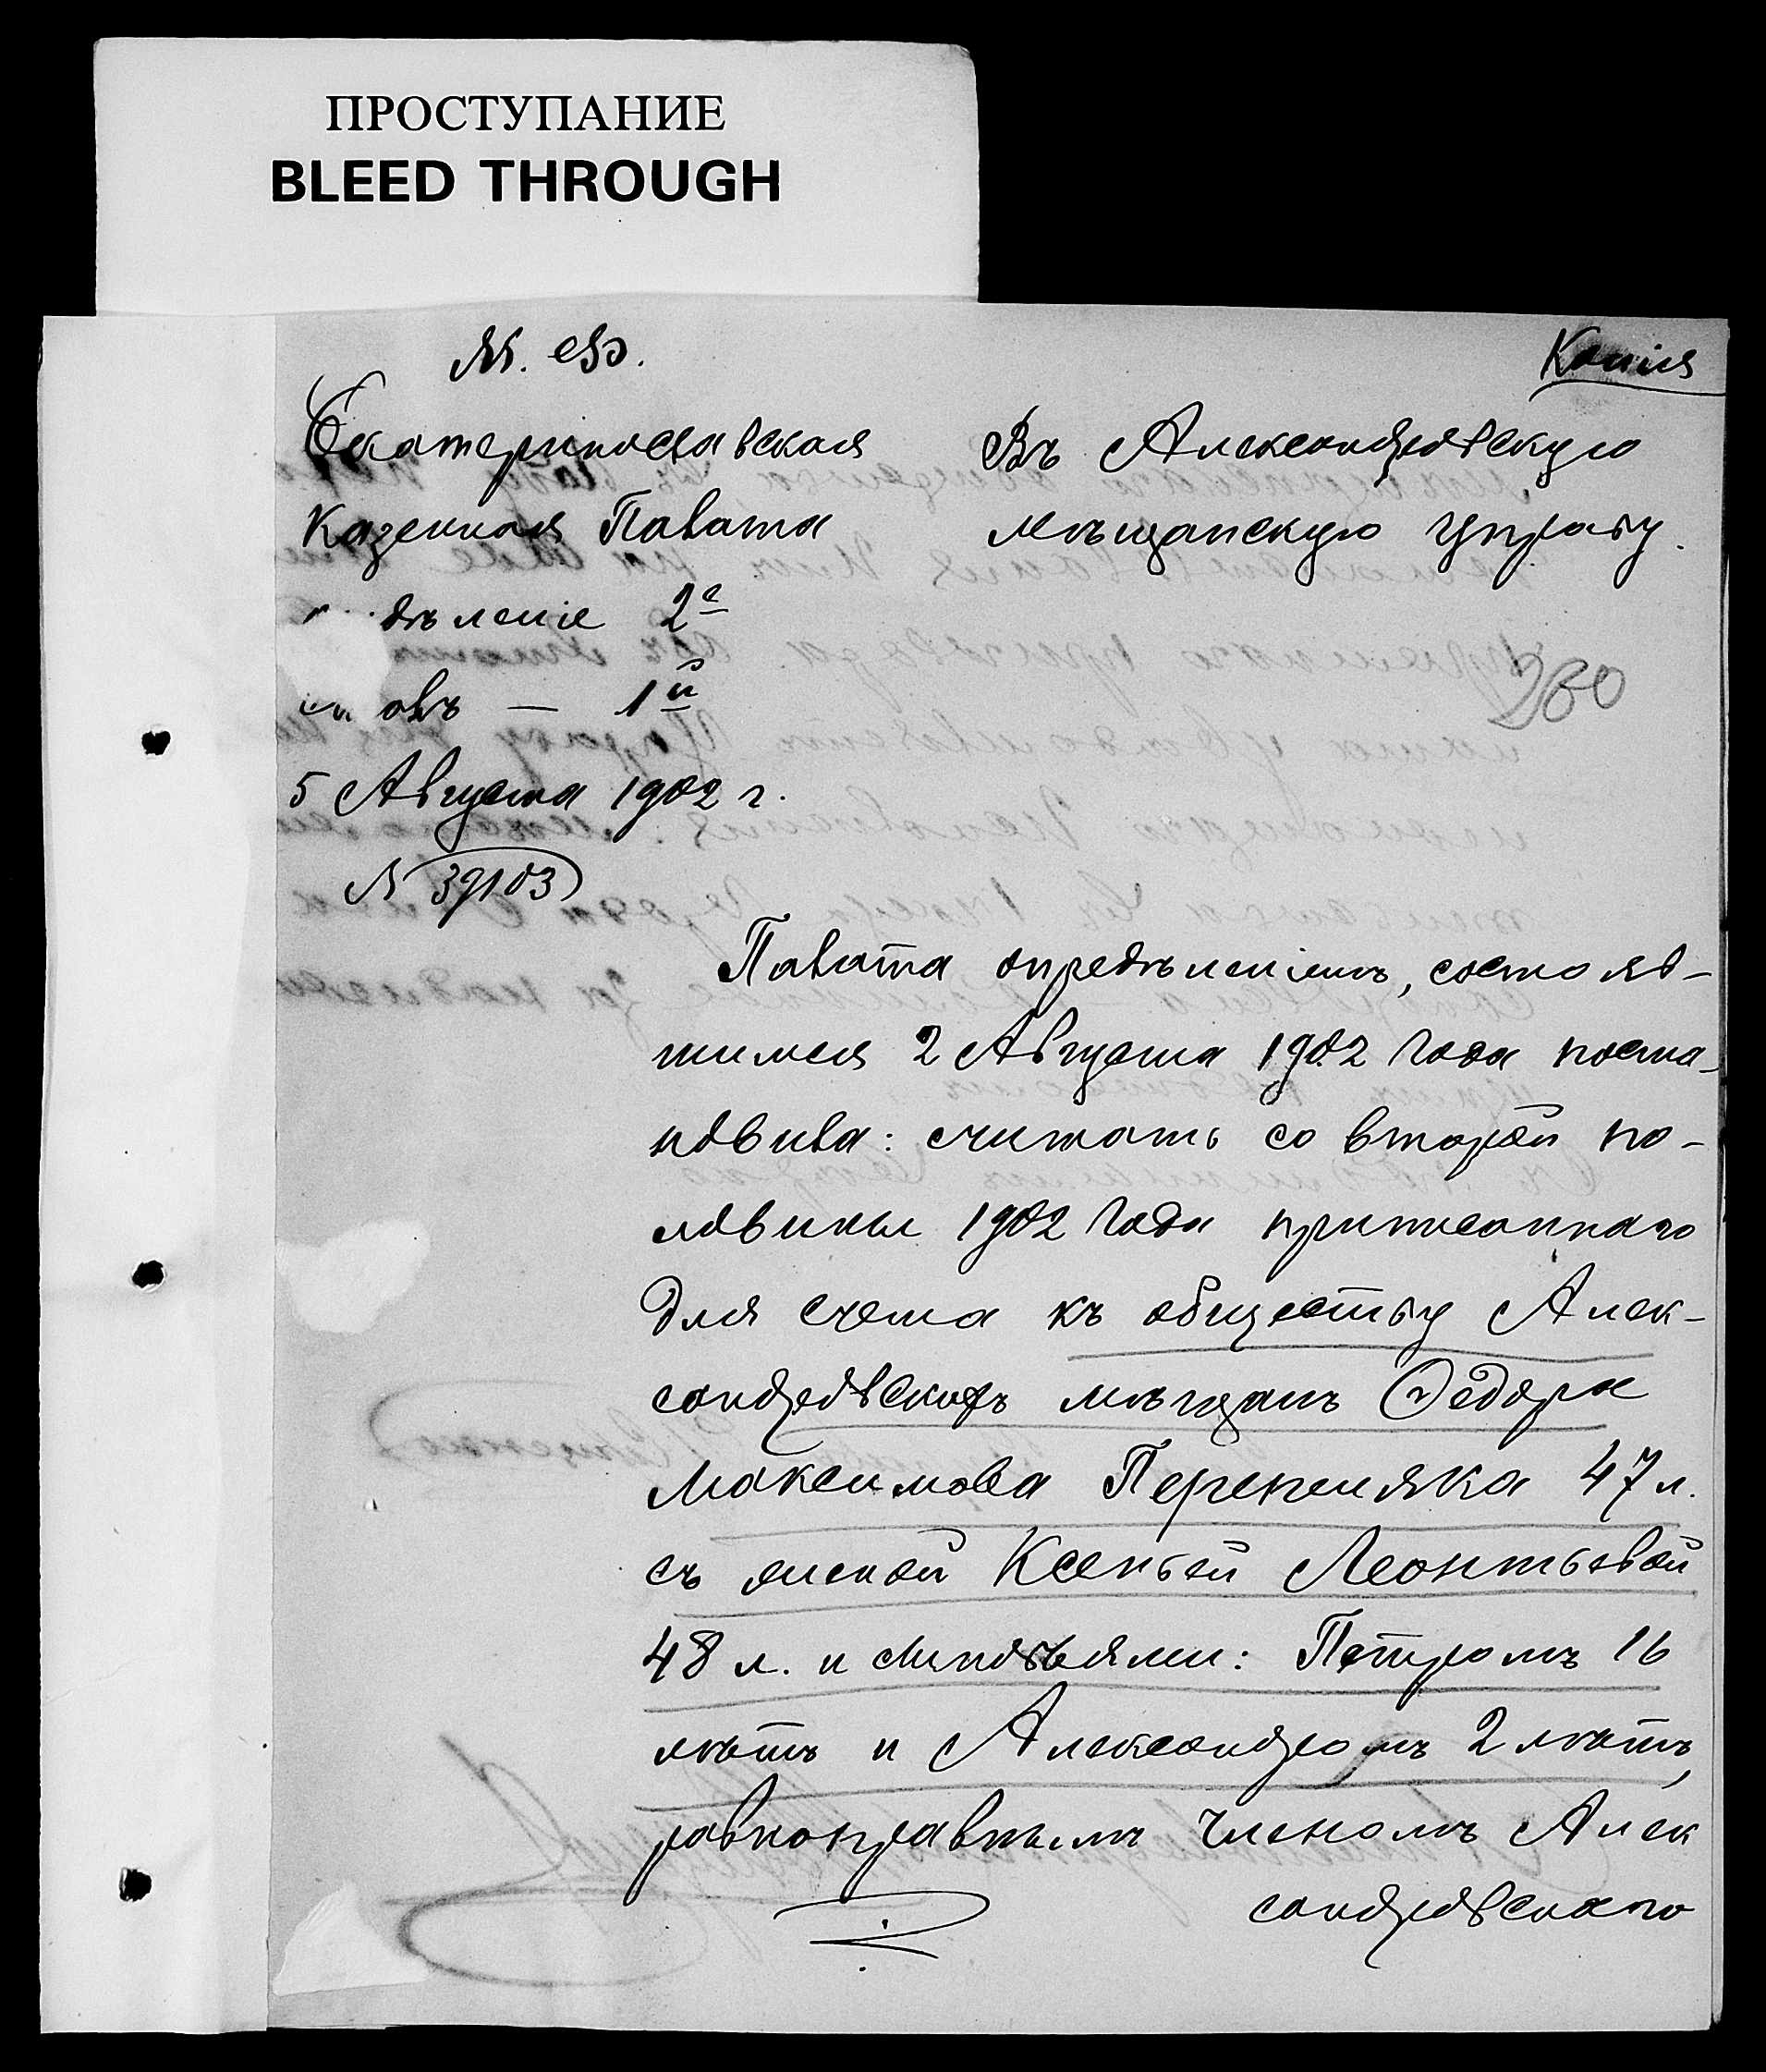 ПРОСТУПАНИЕ
BLEED THROUGH
Копія
М. Ф.
Екатеринославская
Казенная Палата
дѣленіе 2е
овъ — 1й
5 Августа 1902 г.
№ 39103
Въ Александровскую
мѣщанскую управу.
260
Палата опредѣленіемъ, состояв-
шимся 2 Августа 1902 года поста-
новила: считать со второй по-
ловины 1902 года приписаннаго
для счета къ обществу Алек-
сандровскихъ мѣщанъ Ѳедора
Максимова Перепеляка 47 л.
съ женой Ксеньей Леонтьевой
48 л. и сыновьями: Петромъ 16
лѣтъ и Александромъ 2 лѣтъ,
равноправнымъ членомъ Алек
сандровскаго